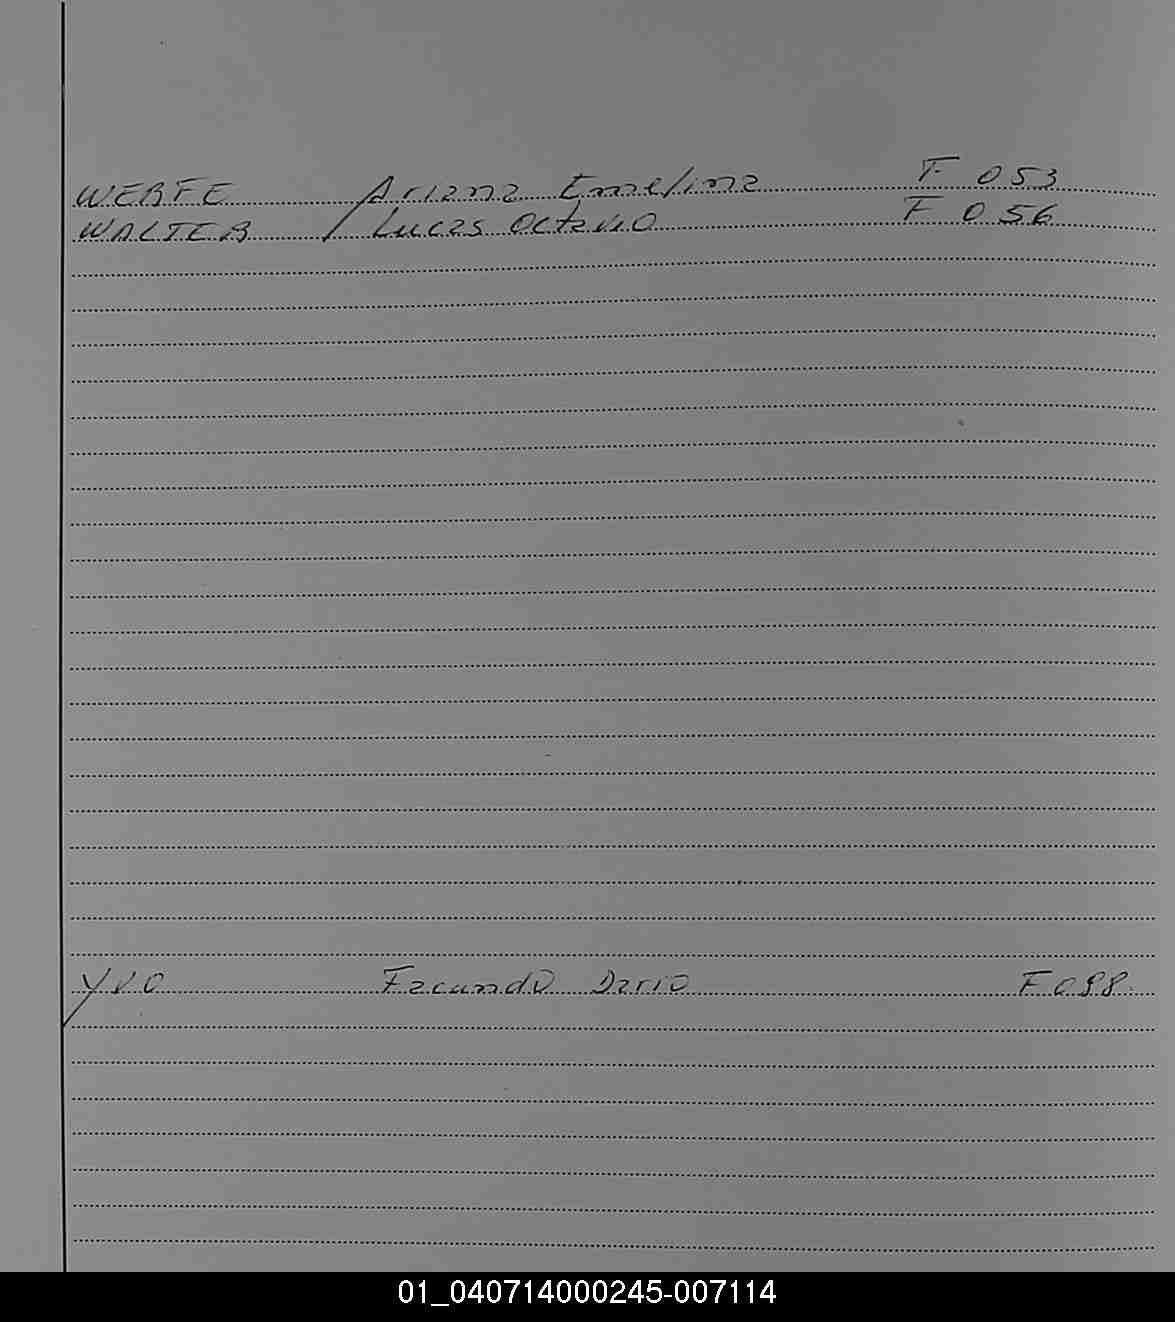 WERFE Ariana Emelina F 053
WALTER Lucas Octavio F 056
YVO Facundo Dario F 098
01_040714000245-007114